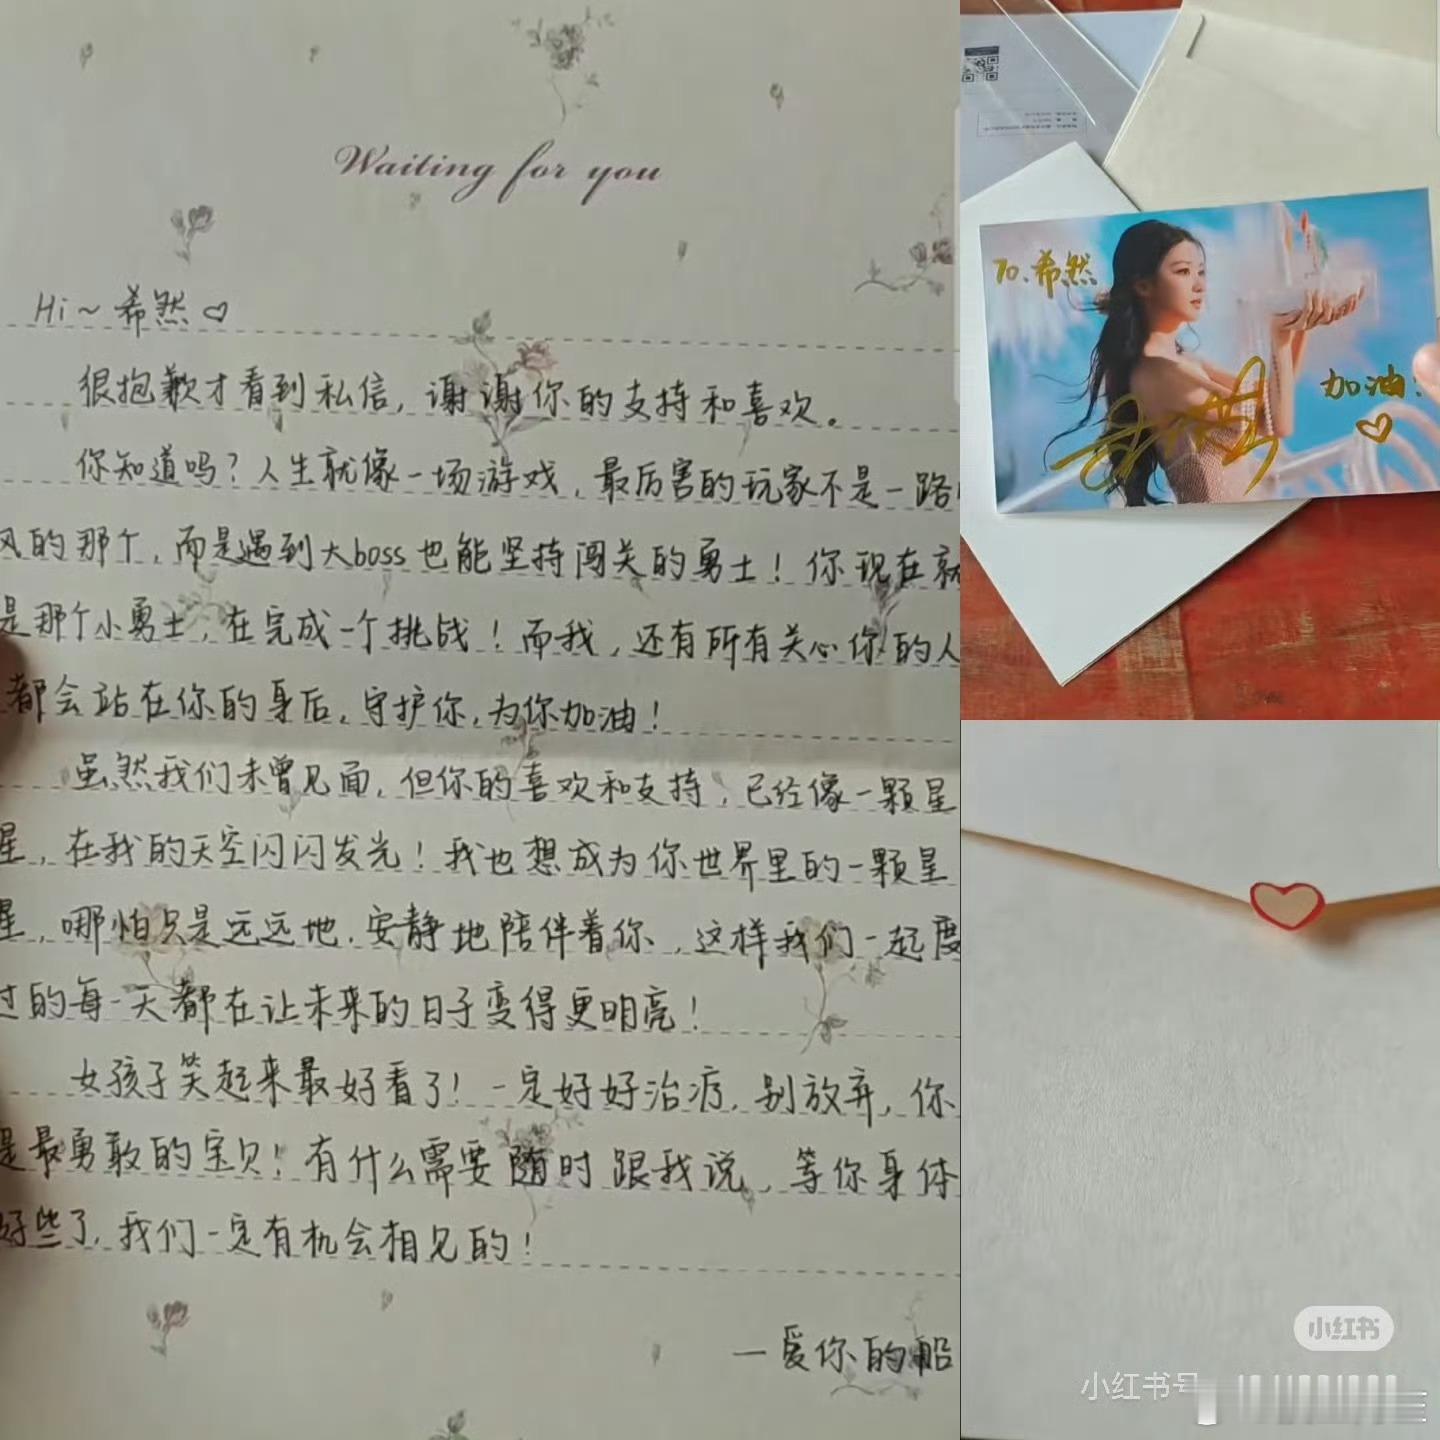 Waiting for you
Hi~希然♡
很抱歉才看到私信，谢谢你的支持和喜欢。
你知道吗？人生就像一场游戏，最厉害的玩家不是一路
风的那个，而是遇到大boss也能坚持闯关的勇士！你现在就
是那个小勇士，在完成一个挑战！而我，还有所有关心你的人
都会站在你的身后，守护你，为你加油！
虽然我们未曾见面，但你的喜欢和支持，已经像一颗星
星，在我的天空闪闪发光！我也想成为你世界里的一颗星
星，哪怕只是远远地，安静地陪伴着你，这样我们一起度
过的每一天都在让未来的日子变得更明亮！
女孩子笑起来最好看了！一定好好治疗，别放弃，你
是最勇敢的宝贝！有什么需要随时跟我说，等你身体
好些了，我们一定有机会相见的！
—爱你的船
TO.希然
加油！
♡
小红书
小红书号